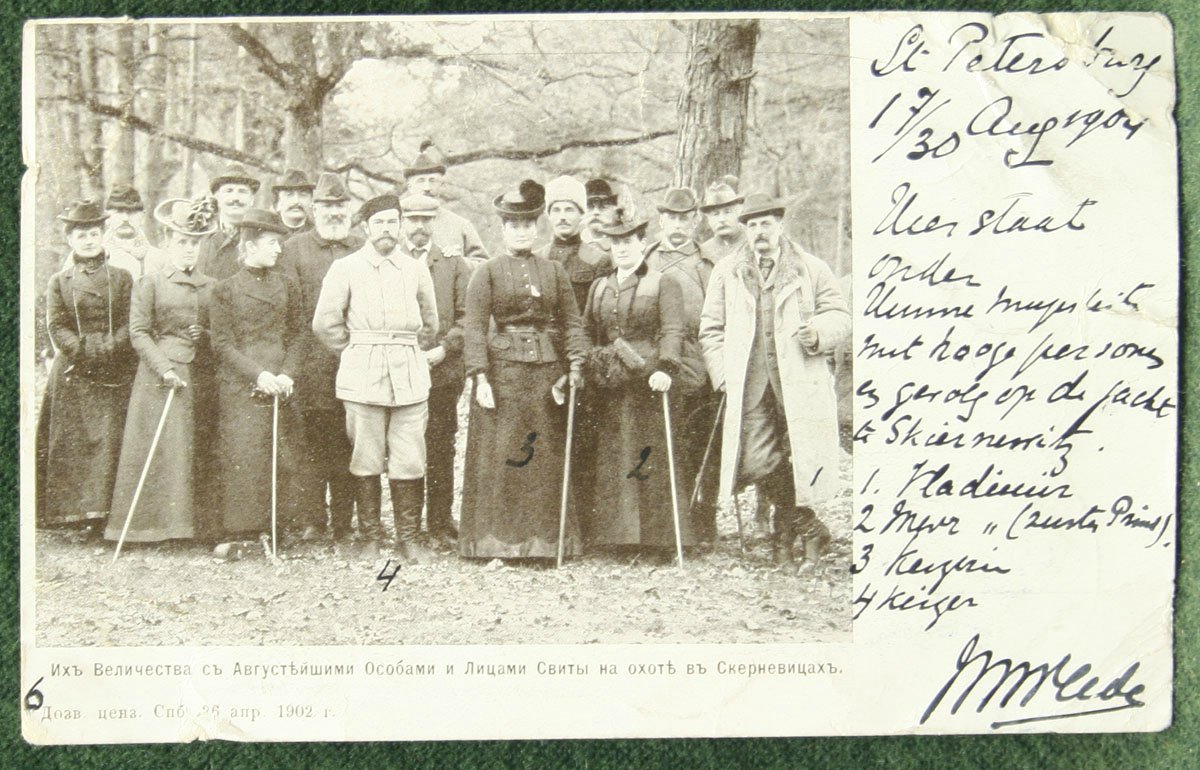 St Petersburg
17/30 Aug 1904
Hier staat
onder
Hunne Majesteits
met hooge personen
en gevolg op de jacht
te Skiernewitz.
1. Vladimir
2 Mevr " (zuster Prins).
3 Keizerin
4 Keizer
3
2
1
4
Ихъ Величества съ Августѣйшими Особами и Лицами Свиты на охотѣ въ Скерневицахъ.
6
Дозв. ценз. Спб. 26 апр. 1902 г.